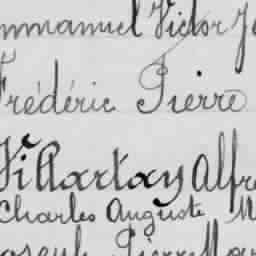 mmanuel Victor Jo
Frédéric Pierre
Villartay Alfre
Charles Auguste M
oseph Pierre Mar